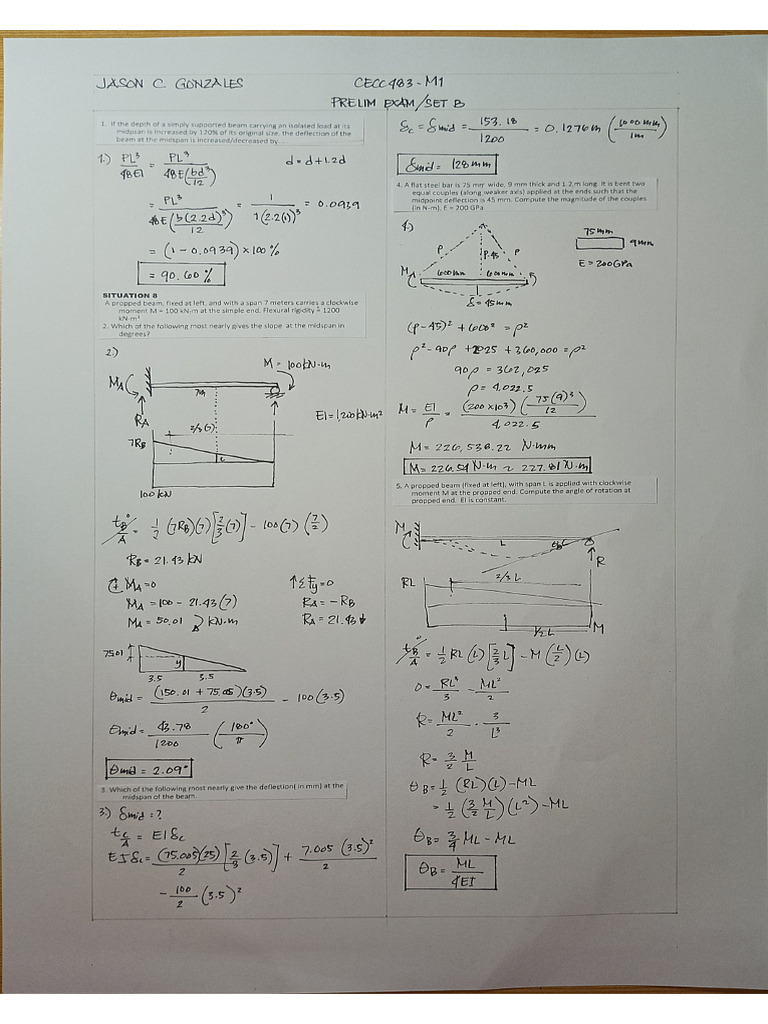 JASON C. GONZALES
CECC483 - M1
PRELIM EXAM/SET B
1. If the depth of a simply supported beam carrying an isolated load at its
midspan is increased by 120% of its original size, the deflection of the
beam at the midspan is increased/decreased by...
1.) PL³/48EI = PL³/48E(bd³/12)   d = d+1.2d
= PL³/48E(b(2.2d)³/12) = 1/1(2.2(1))³ = 0.0939
= (1-0.0939) x 100%
= 90.60%
SITUATION 8
A propped beam, fixed at left, and with a span 7 meters carries a clockwise
moment M = 100 kN-m at the simple end. Flexural rigidity = 1200
kN-m²
2. Which of the following most nearly gives the slope at the midspan in
degrees?
2.)
M = 100kN-m
MA
7m
RA
EI=1,200kN-m²
2/3(7)
7RB
c
100 kN
tB/A = 1/2 (7RB)(7)[2/3(7)] - 100(7)(7/2)
RB = 21.43 kN
MA=0
↑ΣFy=0
MA = 100 - 21.43(7)
RA = -RB
MA = 50.01 kN-m
RA = 21.43↓
75.01
y
3.5 3.5
θmid = (150.01 + 75.05)(3.5)/2 - 100(3.5)
θmid = 43.78/1200 (180°/π)
θmid = 2.09°
3. Which of the following most nearly give the deflection( in mm) at the
midspan of the beam.
3.) δmid = ?
tC/A = EIδc
EIδc = (75.005)(25)/2 [2/3(3.5)] + 7.005(3.5)²/2
- 100/2 (3.5)²
δc = δmid = 153.18/1200 = 0.1276m (1000mm/1m)
δmid = 128mm
4. A flat steel bar is 75 mm wide, 9 mm thick and 1.2 m long. It is bent two
equal couples (along weaker axis) applied at the ends such that the
midpoint deflection is 45 mm. Compute the magnitude of the couples
(in N-m). E = 200 GPa.
4.)
75mm
9mm
ρ ρ-45 ρ
E = 200GPa
MA 600mm 600mm B
δ = 45mm
(ρ-45)² + 600² = ρ²
ρ² - 90ρ + 2025 + 360,000 = ρ²
90ρ = 362,025
ρ = 4,022.5
M = EI/ρ = (200 x10³)(75(9)³/12)/4,022.5
M = 226,536.22 N-mm
M = 226.54 N-m ≈ 227.81 N-m
5. A propped beam (fixed at left), with span L is applied with clockwise
moment M at the propped end. Compute the angle of rotation at
propped end. EI is constant.
M
L
θB
R
RL
2/3 L
M
1/2 L
tB/A = 1/2 RL(L)[2/3 L] - M(L/2)(L)
0 = RL³/3 - ML²/2
R = ML²/2 · 3/L³
R = 3/2 M/L
θB = 1/2 (RL)(L) - ML
= 1/2 (3/2 M/L)(L²) - ML
θB = 3/4 ML - ML
θB = ML/4EI